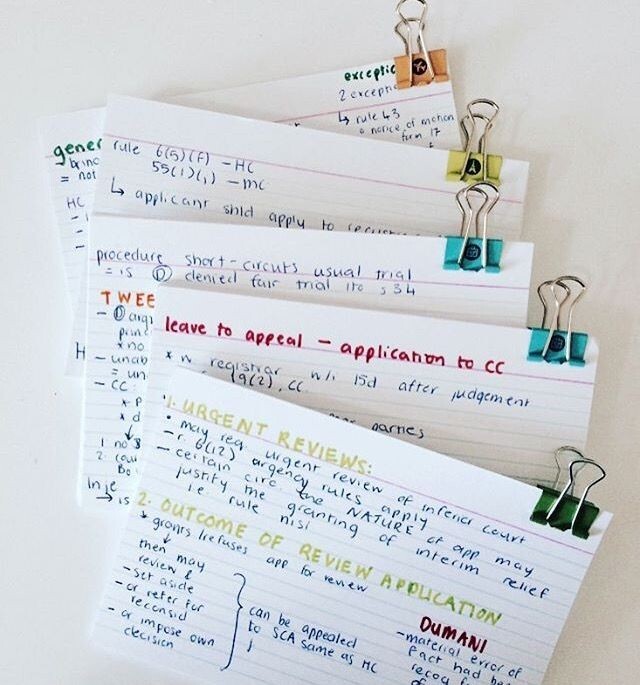 exceptio
2 excepti
↳ rule 43
notice of motion
form 17
gener
princ
= not
HC
rule 6(5)(f) – HC
55(1)(j) – MC
↳ applicant shld apply to
procedure short-circuits usual trial
= is Ⓓ denied fair trial ito s 34
TWEE
– Ⓓ argu
princ
* no
– unab
= un
– CC:
* P
* d
1 no
2. cou
Be
Inje
→ is
leave to appeal – application to CC
* w registrar w/i 15d after judgement
19(2) CC
parties
1. URGENT REVIEWS:
• may req. urgent review of inferior court
– r. 6(12) urgency rules apply
– certain circ the NATURE of app may
justify the granting of interim relief
i.e. rule nisi
2. OUTCOME OF REVIEW APPLICATION
* grants/refuses app for review
↓
then may
review &
– set aside
– or refer for
reconsid
– or impose own
decision
can be appealed
to SCA same as HC
DUMANI
– material error of
fact had be
recog